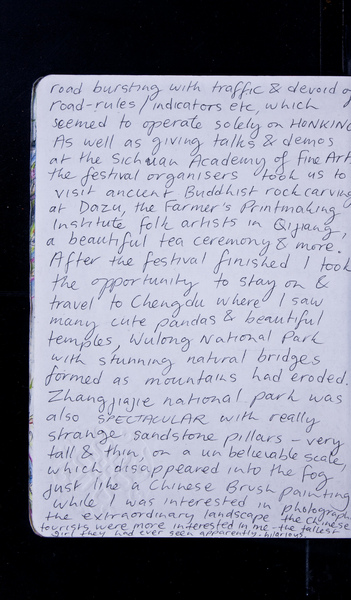 road bursting with traffic & devoid of
road-rules/indicators etc, which
seemed to operate solely on HONKING
As well as giving talks & demos
at the Sichuan Academy of Fine Art
the festival organisers took us to
visit ancient Buddhist rock carving
at Dazu, the Farmer's Printmaking
Institute folk artists in Qijiang,
a beautiful tea ceremony & more.
After the festival finished I took
the opportunity to stay on &
travel to Chengdu where I saw
many cute pandas & beautiful
temples, Wulong National Park
with stunning natural bridges
formed as mountains had eroded.
Zhangjiajie national park was
also SPECTACULAR with really
strange sandstone pillars - very
tall & thin, on a unbelievable scale,
which disappeared into the fog
just like a Chinese Brush painting
While I was interested in photograph
the extraordinary landscape the Chinese
tourists were more interested in me - the tallest
girl they had ever seen apparently - hilarious.